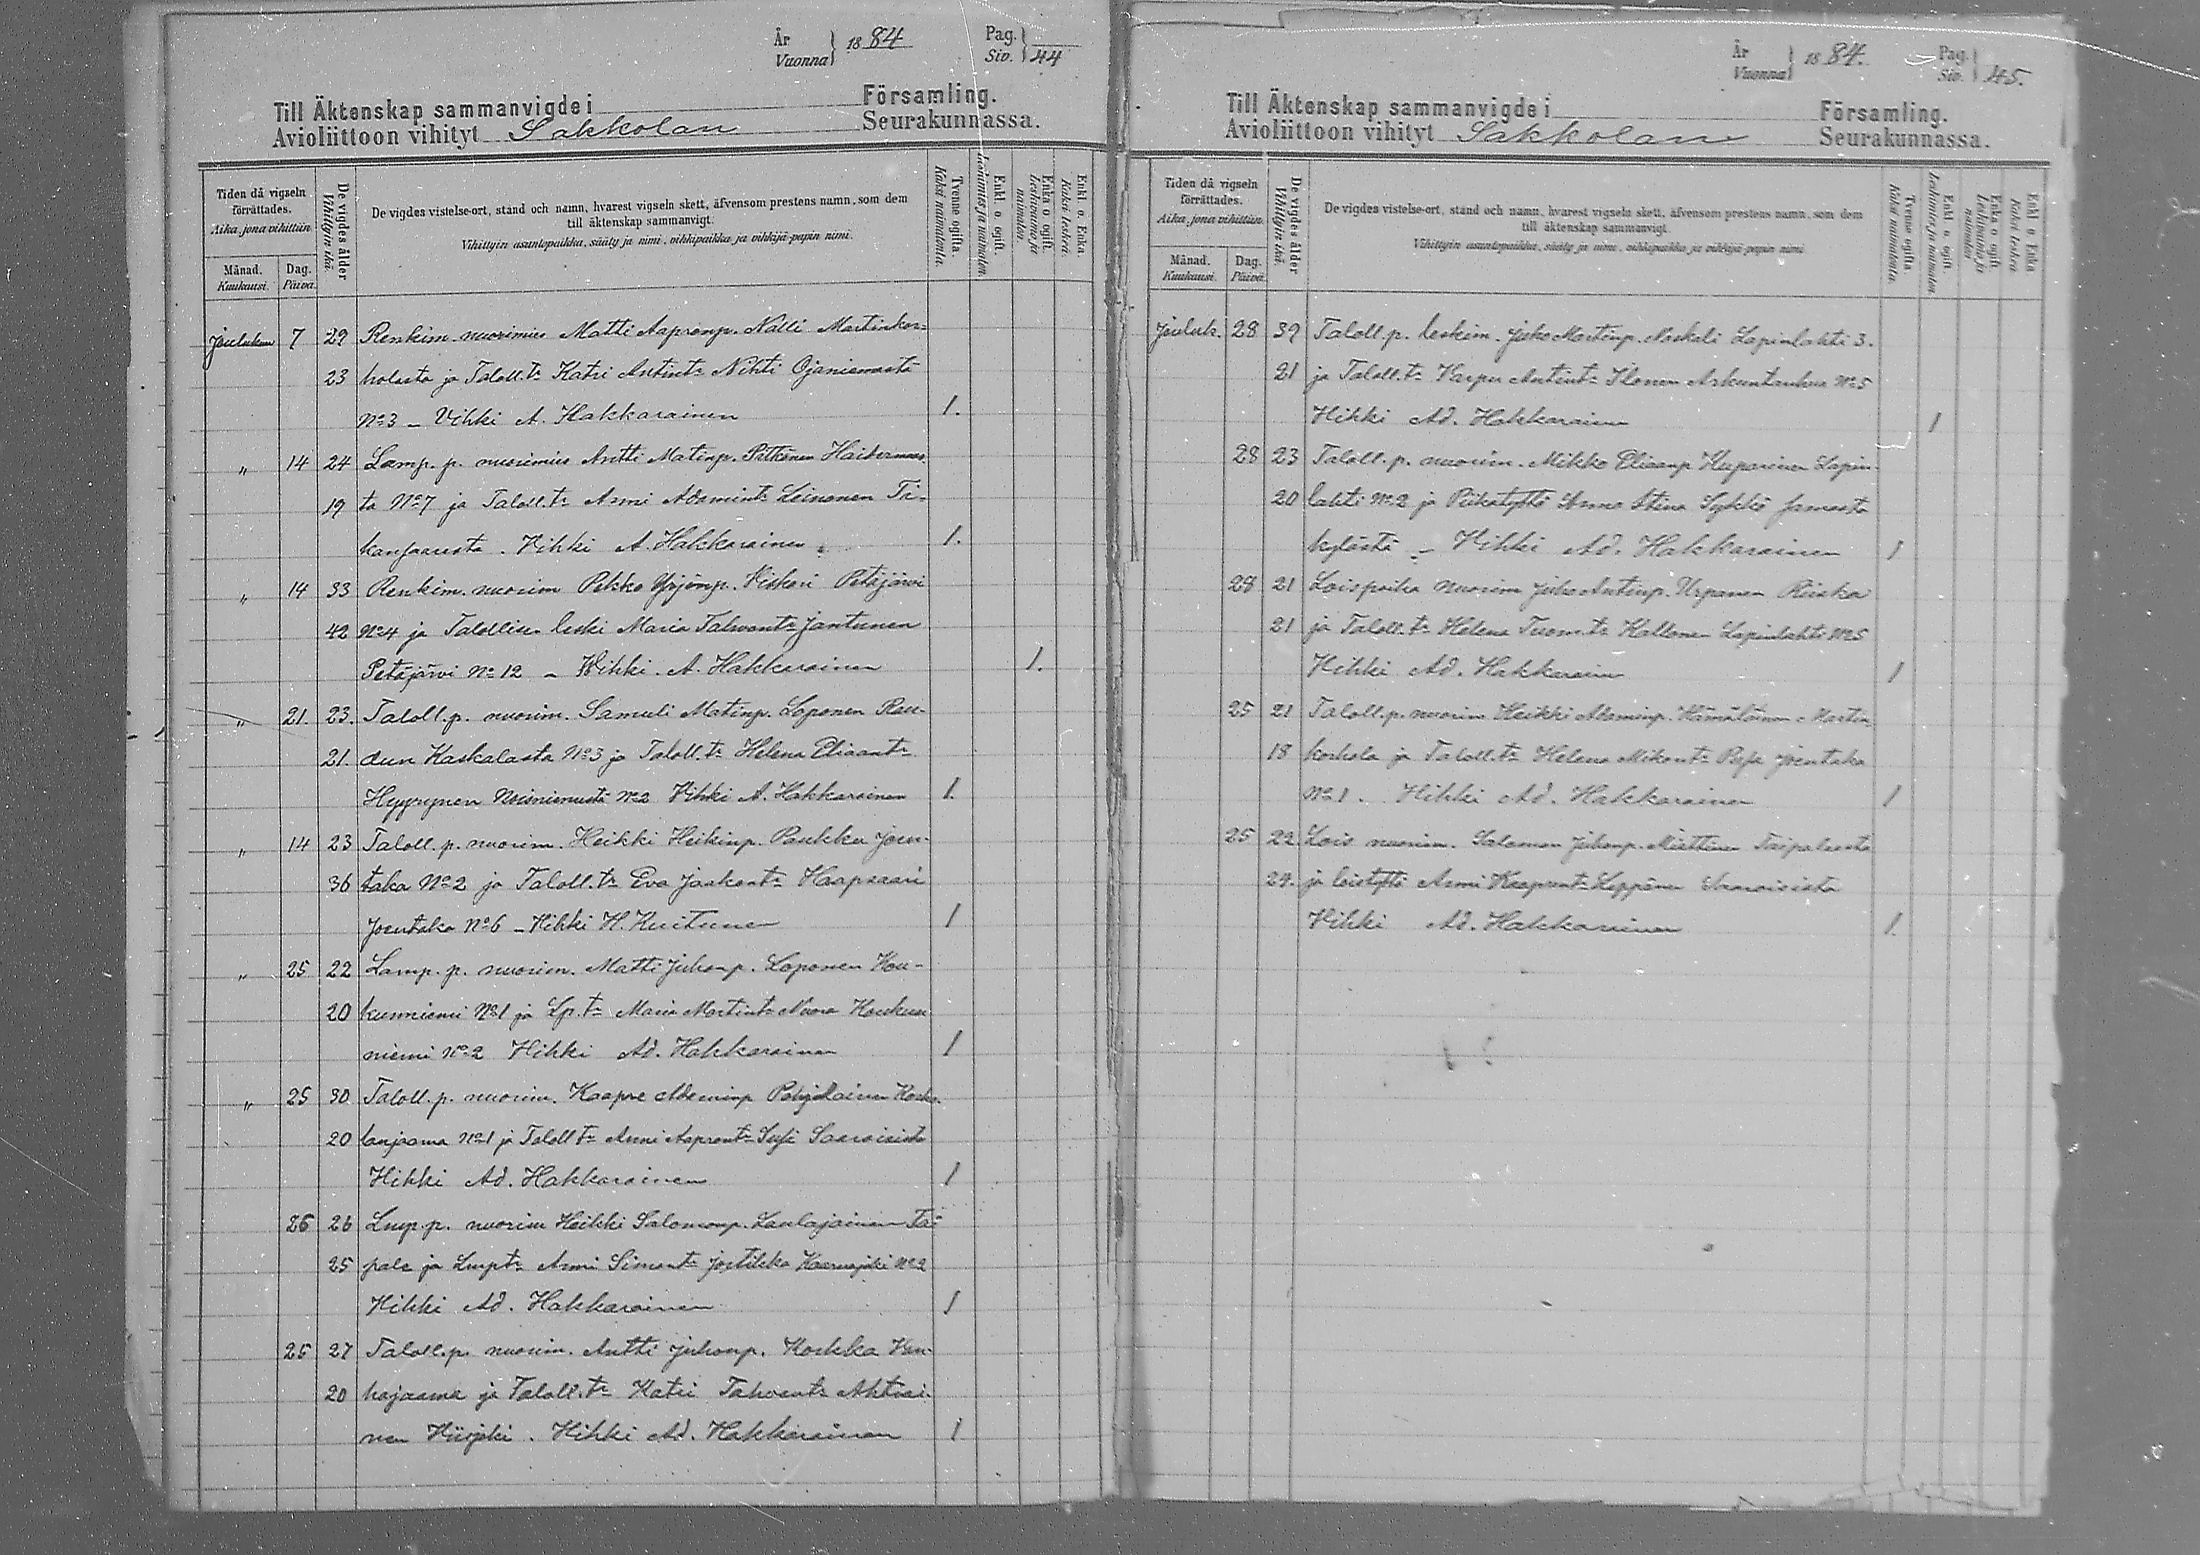 År
Vuonna } 1884
Pag.
Siv. } 44
Till Äktenskap sammanvigde i Församling.
Avioliittoon vihityt Sakkolan Seurakunnassa.
Tiden då vigseln förrättades.
Aika, jona vihittiin.
Månad.
Kuukausi.
Dag.
Päivä.
De vigdes ålder
Vihittyin ikä.
De vigdes vistelse-ort, stånd och namn, hvarest vigseln skett, äfvensom prestens namn, som dem
till äktenskap sammanvigt.
Vihittyin asuntopaikka, sääty ja nimi, vihkipaikka ja vihkijä-papin nimi.
Tvenne ogifta.
Kaksi naimatonta.
Enkl. o. ogift.
Leskimies ja naimaton.
Enka o. ogift.
Leskivaimo ja naimaton.
Enkl. o. Enka.
Kaksi leskeä.
Joulukuu 7 29 Renkim. nuorimies Matti Aapronp. Nalli Martinkos-
23 kolasta ja Taloll.tr Katri Antintr Nihti Ojaniemestä
No 3 – Vihki A. Hakkarainen 1.
" 14 24 Lamp. p. nuorimies Antti Matinp. Pätkönen Haitermaas
19 ta No 7 ja Taloll.tr Anni Adamintr Leinonen Ti-
kansaaresta. Vihki A. Hakkarainen 1.
" 14 33 Renkim. nuorim Pekko Yrjönp. Kiskari Petäjärvi
42 No 4 ja Talollisen leski Maria Tahvontr Jantunen
Petäjärvi No 12 – Vihki A. Hakkarainen 1.
" 21. 23. Taloll. p. nuorim. Samuli Matinp. Loponen Rau-
21. dun Kaskalasta No 3 ja Taloll.tr Helena Eliaantr
Hyyrynen Noisniemestä No 2 Vihki A. Hakkarainen 1.
" 14 23 Taloll. p. nuorim. Heikki Heikinp. Paukku Joen-
36 taka No 2 ja Taloll.tr Eva Jaakontr Haapsaari
Joentaka No 6 – Vihki H. Kuitunen 1
" 25 22 Lamp. p. nuorim. Matti Juhonp. Loponen Kou-
20 kunniemi No 1 ja Lp.tr Maria Martintr Nuora Koukun
niemi No 2 Vihki Ad. Hakkarainen 1
" 25 30 Taloll. p. nuorim. Kaapre Adaminp Pohjolainen Koska-
20 lanjaama No 1 ja Taloll tr Anni Aaprontr Susi Saaroisista
Vihki Ad. Hakkarainen 1
26 26 Lmp. p. nuorim Heikki Salomonp. Laulajainen Tai-
25 pale ja Lmptr Anni Simontr Jortikka Kaarnajoki No 2
Vihki Ad. Hakkarainen 1
25 27 Taloll. p. nuorim. Antti Juhonp. Korkka Van-
20 hajaama ja Taloll.tr Katri Tahvontr Ahtiai-
nen Kiirjoki. Vihki Ad. Hakkarainen 1
År
Vuonna } 1884.
Pag.
Siv. } 45.
Till Äktenskap sammanvigde i Församling.
Avioliittoon vihityt Sakkolan Seurakunnassa.
Tiden då vigseln förrättades.
Aika, jona vihittiin.
Månad.
Kuukausi.
Dag.
Päivä.
De vigdes ålder
Vihittyin ikä.
De vigdes vistelse-ort, stånd och namn, hvarest vigseln skett, äfvensom prestens namn, som dem
till äktenskap sammanvigt.
Vihittyin asuntopaikka, sääty ja nimi, vihkipaikka ja vihkijä-papin nimi.
Tvenne ogifta.
Kaksi naimatonta.
Enkl. o. ogift.
Leskimies ja naimaton.
Enka o. ogift.
Leskivaimo ja naimaton.
Enkl. o. Enka
Kaksi leskeä
Jouluk. 28 39 Taloll. p. leskim. Juho Martinp. Naskali Lapinlahti 3.
21 ja Taloll.tr Varpu Antintr Ilonen Arkuntanhua No 5
Vihki Ad. Hakkarainen 1
28 23 Taloll. p. nuorim. Mikko Eliaanp Kuparinen Lapin-
20 lahti No 2 ja Piikatyttö Anna Stina Sykkö samasta
kylästä – Vihki Ad. Hakkarainen 1
28 21 Loispoika nuorim Juho Antinp. Urpanen Riiska
21 ja Taloll.tr Helena Tuom.tr Kallonen Lapinlahti No 5
Vihki Ad. Hakkarainen 1
25 21 Taloll. p. nuorim Heikki Adaminp. Hämäläinen Martin
18 koskola ja Taloll.tr Helena Mikontr Joentaka
No 1. Vihki Ad. Hakkarainen 1
25 22. Lois nuorim. Salomon Juhonp. Miettinen Taipaleesta
29. ja loistyttö Anni Kaaprontr Leppänen Saaroisista
Vihki Ad. Hakkarainen 1.